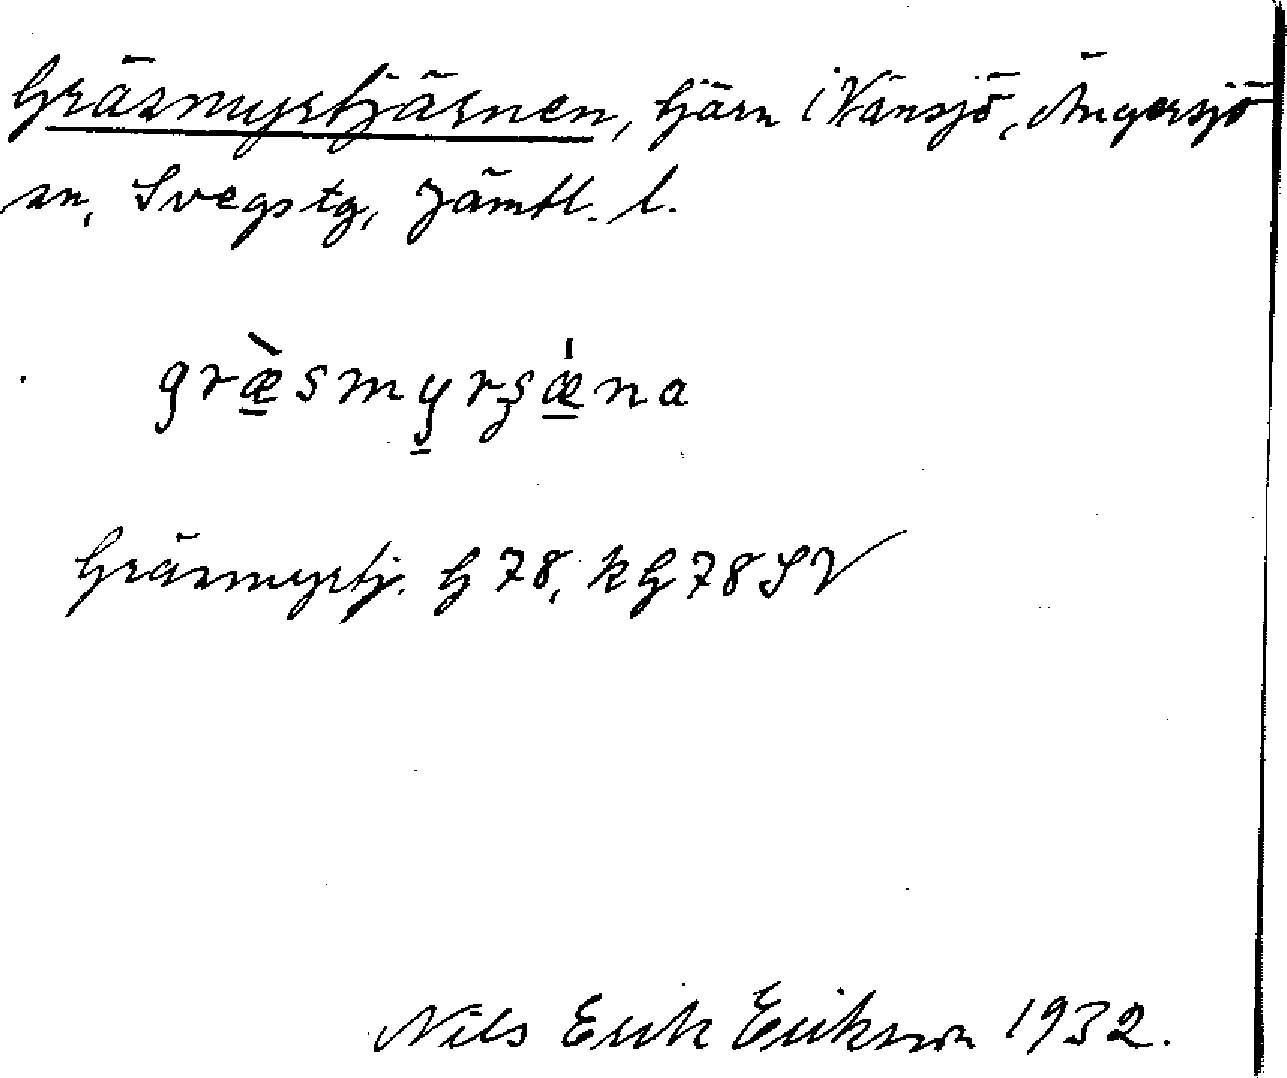 Gräsmyrtjärnen, tjärn i Vänsjö, Ängersjö
sn, Svegs tg, Jämtl. l.
græ̀smyrʂǽna
Gräsmyrtj. G 78, k G 78 SV
Nils Erik Erikson 1932.